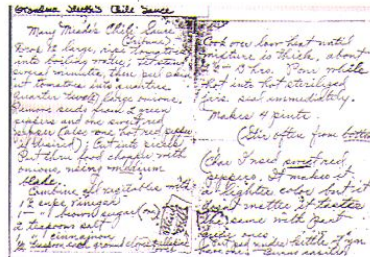 Grandma 's Chili Sauce
Mary Meade's Chili Sauce
(Tribune)
12 large, ripe
into boiling water; let stand
several minutes, then peel skin
cut tomatoes into quarters
Quarter two large onions.
Remove seeds from green
peppers and one sweet red
pepper (also one hot red pepper
if desired); Cut into pieces
Put thru food chopper with
onions, using medium
blade.
Combine all vegetables with
1 ½ cups vinegar
1 " brown sugar
2 teaspoons salt
1 " cinnamon
½ teaspoon each ground cloves
Cook over low heat until
mixture is thick, about
2 ½ hrs. Pour while
hot into hot sterilized
jars. seal immediately.
Makes 4 pints.
(Stir often from bottom
(Char I used sweet red
peppers. It makes it
a lighter color but it
doesn't matter it tastes
the same with part
ones.
put pad under kettle if you
have one. Burns easily